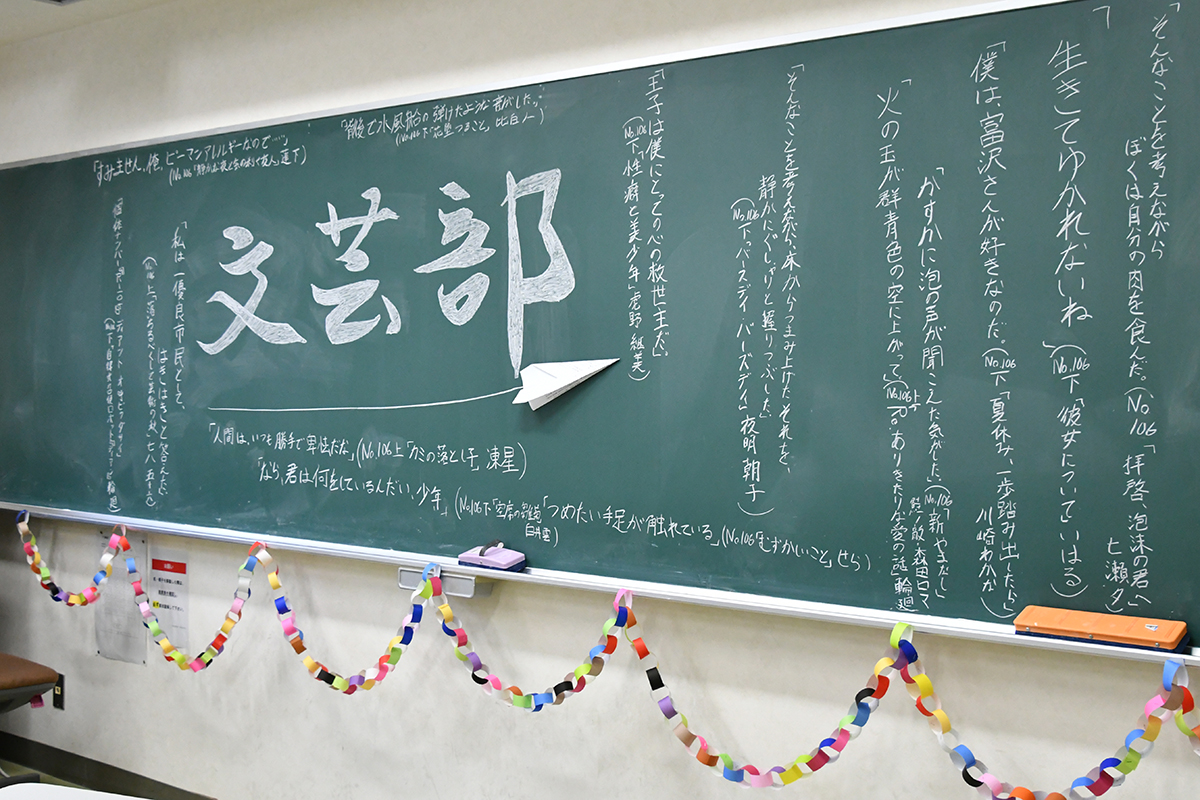 「そんなことを考えながら
ぼくは自分の肉を食んだ。(No.106「拝啓、泡沫の君へ」
七瀬夕)
「生きてゆかれないね」(No.106下「彼女について」いはる)
「僕は、富沢さんが好きなのだ。」(No.106下「夏休み、一歩踏み出したら」
川崎わかか)
「かすかに泡の音が聞こえた気がした。」(No.106
森田ロマ)
「火の玉が群青色の空に上がって」(No.106上
輪廻)
「そんなことを考えながら、床からつまみ上げたそれを、
静かにぐしゃりと握りつぶした。」
(No.106下「バースデイ・バースデイ」夜明朝子)
「王子は僕にとっての心の救世主だ。」
(No.106下「性癖と美少年」虎野継美)
「背後で水風船の弾けたような音がした。」
比白人)
文芸部
「すみません、俺、ピーマンアレルギーなので…」
(No.106
「私は一優良市民として、
はきはきと答えた。」
(No.106上「落ちるべくして芸術の秋」七八五十三)
「人間は、いつも勝手で卑怯だな」(No.106上「カミの落とし子」凍星)
「なら、君は何をしているんだい、少年」(No.106下
「つめたい手足が触れている」(No.106「むずかしいこと」せら)
お願い